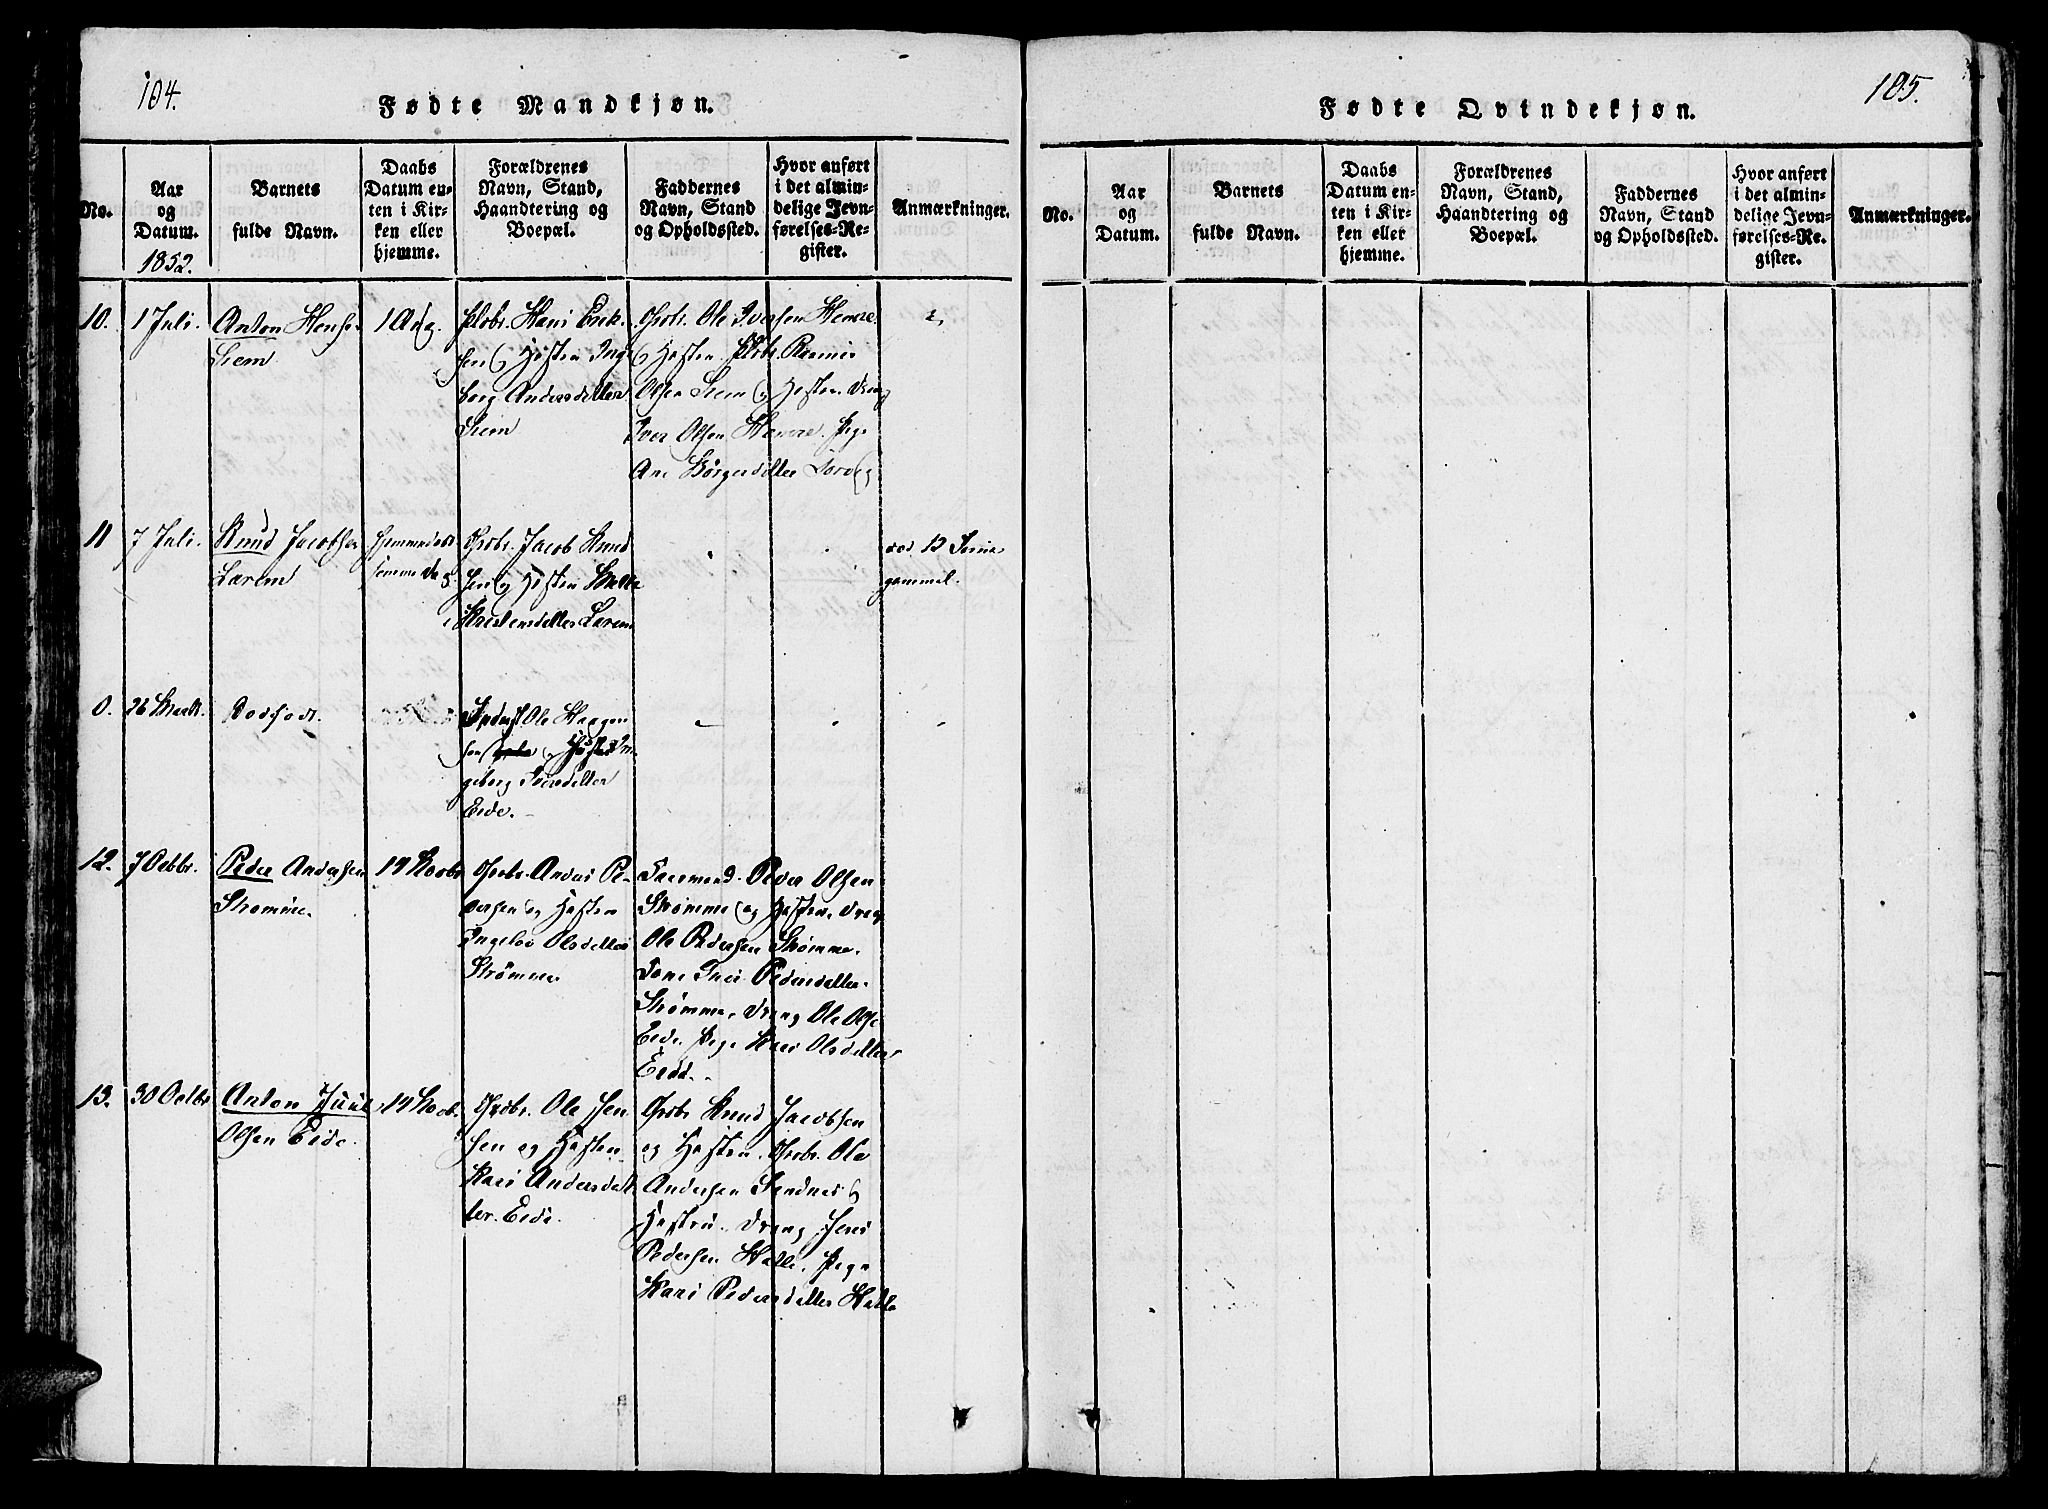 104.
Fødte Mandkjøn.
No.
Aar
og
Datum.
1852.
Barnets
fulde Navn.
Daabs
Datum en-
ten i Kir-
ken eller
hjemme.
Forældrenes
Navn, Stand,
Haandtering og
Boepæl.
Faddernes
Navn, Stand
og Opholdssted.
Hvor anført
i det almin-
delige Jevn-
førelses-Re-
gister.
Anmærkninger.
10.
1 Juli.
Anton Hanse
Siem
1 Aug.
Hans Erik-
sen
Inge-
borg Andersdatter
Siem
Gbr. Ole Iversen Hemre
Olsen Siem
Iver Olsen Hemre. Pige
Ane Børgesdatter
11
7 Juli.
Knud Jacobsen
Larem
Hjemmedøbt
samme Dag
Gbr. Jacob Knud
sen og
Kristensdatter Larem
død 13 Timer
gammel.
0.
26 Marts.
Dødfødt.
Inderst Ole Haagen
sen
In-
geborg Iversdatter
Eide.
12.
7 Octbr.
Peder Andersen
Strømme.
14 Novbr
Gbr. Anders Pe-
dersen og Hustru
Olsdatter
Strømme.
Peder Olsen
Strømme og Hustru. Dreng
Ole Pedersen Strømme.
Pedersdatter
Strømme, Dreng Ole Olse
Eide. Pige Kari Olsdatter
Eide.
13.
30 Octbr
Anton Juul
Olsen Eide.
14 Novb.
Gbr. Ole Jen
sen og Hustru
Kari Andersdat
ter. Eide.
Gbr Knud Jacobsen
og Hustru. Gbr. Ole
Andersen Sandnes og
Hustru. Dreng Jens
Pedersen Halle. Pige
Kari Pedersdatter Halle
105.
Fødte Qvindekjøn.
No.
Aar
og
Datum.
Barnets
fulde Navn.
Daabs
Datum en-
ten i Kir-
ken eller
hjemme.
Forældrenes
Navn, Stand,
Haandtering og
Boepæl.
Faddernes
Navn, Stand
og Opholdssted.
Hvor anført
i det almin-
delige Jevn-
førelses-Re-
gister.
Anmærkninger.